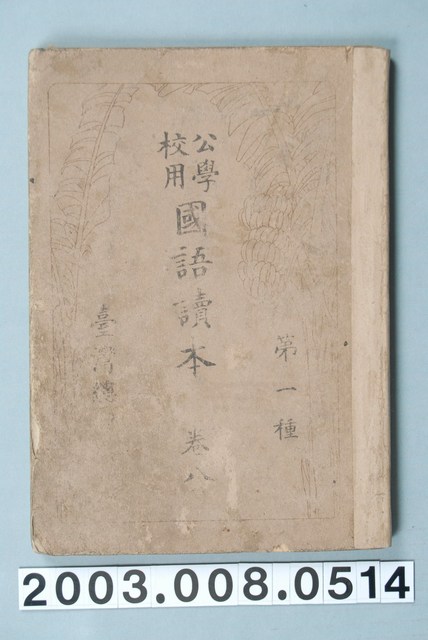 公學校用
國語讀本 卷八
第一種
臺灣總
2003.008.0514